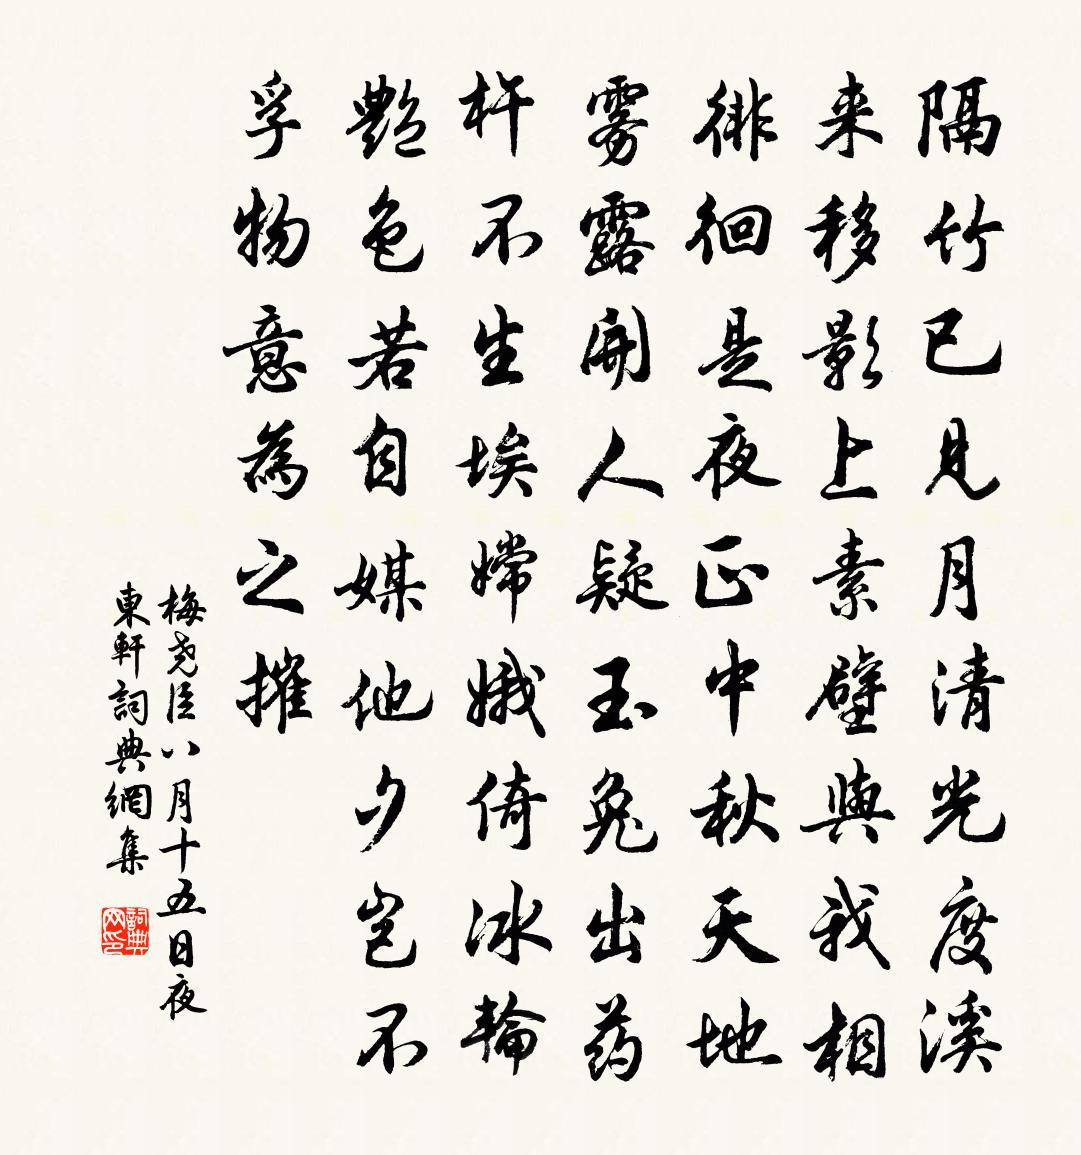 隔竹已見月清光度溪
来移影上素壁與我相
徘徊是夜正中秋天地
雾露開人疑玉兔出药
杵不生埃嫦娥倚冰輪
艷色若自媒他夕岂不
孚物意為之摧
梅尧臣八月十五日夜
東軒詞典網集
詞典网印